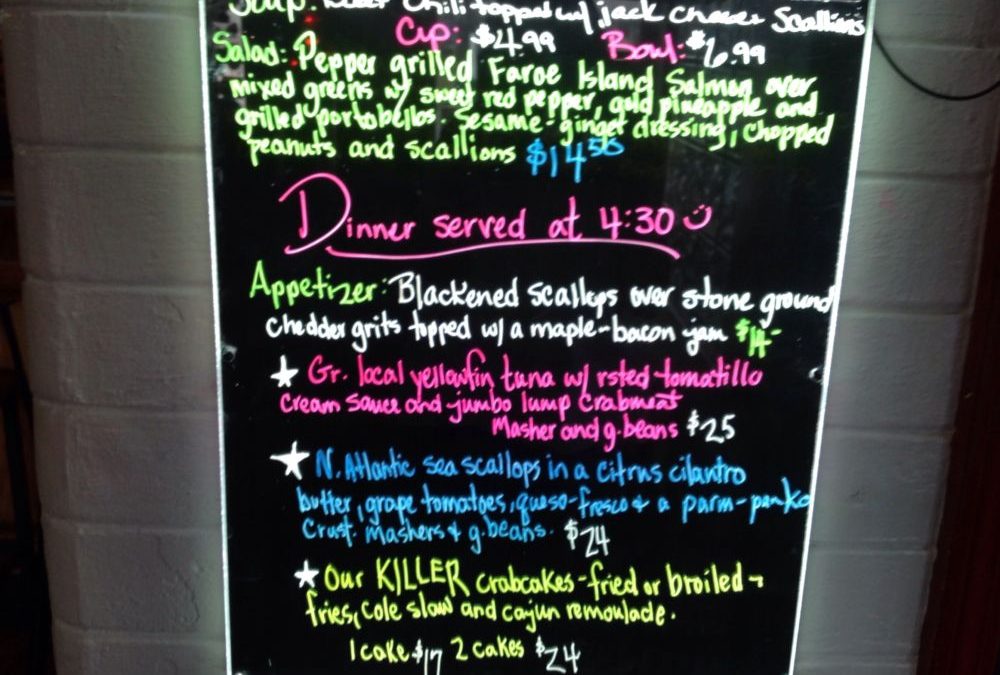 Soup: Beef Chili topped w/ jack cheese Scallions
Cup: $4.99 Bowl: $6.99
Salad: Pepper grilled Faroe Island Salmon over
mixed greens w/ sweet red pepper, gold pineapple and
grilled portobellos. Sesame-ginger dressing, chopped
peanuts and scallions $14.50
Dinner served at 4:30
Appetizer: Blackened scallops over stone ground
chedder grits topped w/ a maple-bacon jam $14-
Gr. local yellowfin tuna w/ rsted tomatillo
cream sauce and jumbo lump crabmeat
Masher and g.beans $25
N. Atlantic sea scallops in a citrus cilantro
butter, grape tomatoes, queso-fresco & a parm-panko
crust. mashers & g.beans. $24
Our KILLER crabcakes-fried or broiled-
fries, cole slaw and cajun remoulade.
1 cake $17 2 cakes $24